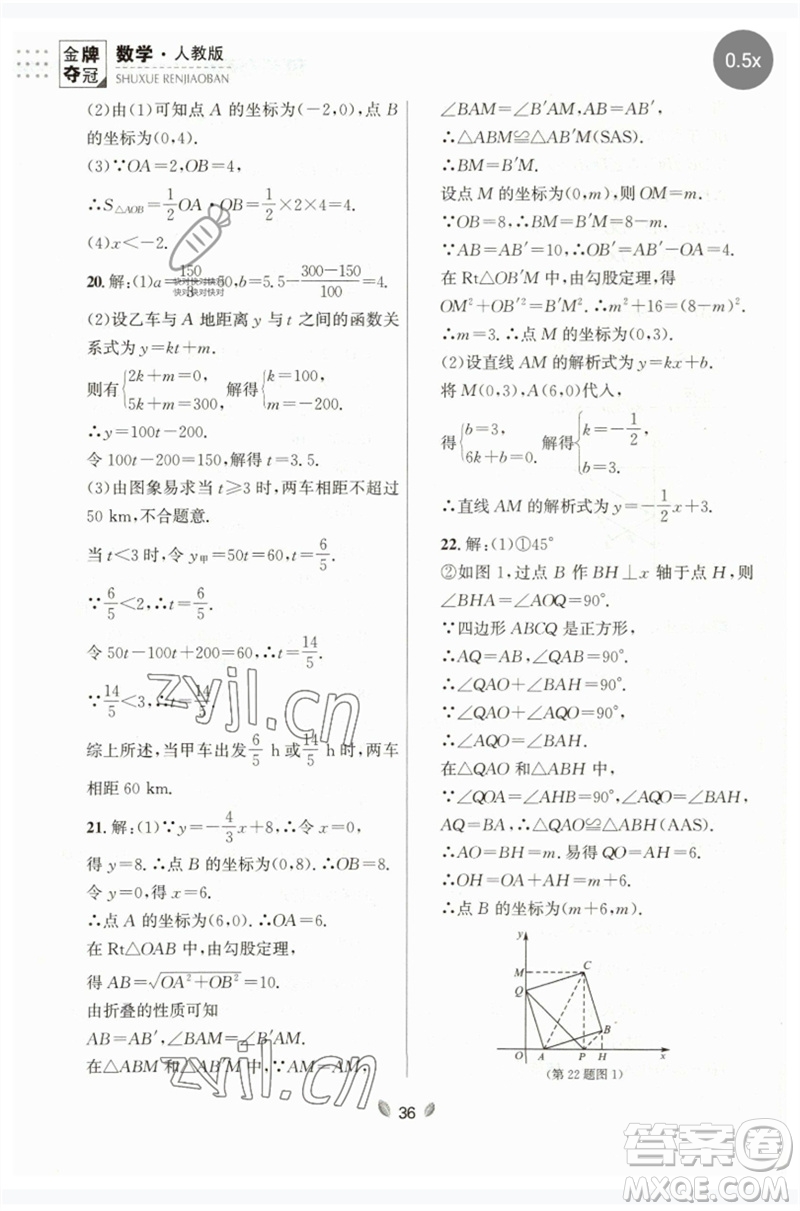 金牌夺冠 数学·人教版
SHUXUE RENJIAOBAN
0.5x
(2)由(1)可知点 A 的坐标为(-2,0),点 B
的坐标为(0,4).
(3)∵OA=2,OB=4,
∴S△AOB=1/2 OA·OB=1/2×2×4=4.
(4)x<-2.
20.解:(1)a=150/3=50,b=5.5-(300-150)/100=4.
快对快对快对快对
快对快对快对快对
(2)设乙车与 A 地距离 y 与 t 之间的函数关
系式为 y=kt+m.
则有{2k+m=0, 5k+m=300, 解得{k=100, m=-200.
∴y=100t-200.
令 100t-200=150,解得 t=3.5.
(3)由图象易求当 t⩾3 时,两车距离不超过
50 km,不合题意.
当 t<3 时,令 y甲=50t=60,t=6/5.
∵6/5<2,∴t=6/5.
令 50t-100t+200=60,∴t=14/5.
∵14/5<3,∴t=14/5.
综上所述,当甲车出发 6/5 h 或 14/5 h 时,两车
相距 60 km.
21.解:(1)∵y=-4/3 x+8,∴令 x=0,
得 y=8.∴点 B 的坐标为(0,8).∴OB=8.
令 y=0,得 x=6.
∴点 A 的坐标为(6,0).∴OA=6.
在 Rt△OAB 中,由勾股定理,
得 AB=√(OA²+OB²)=10.
由折叠的性质可知
AB=AB′,∠BAM=∠B′AM.
在△ABM 和△AB′M 中,
∠BAM=∠B′AM,AB=AB′,
∴△ABM≌△AB′M(SAS).
∴BM=B′M.
设点 M 的坐标为(0,m),则 OM=m.
∵OB=8,∴BM=B′M=8-m.
∵AB=AB′=10,∴OB′=AB′-OA=4.
在 Rt△OB′M 中,由勾股定理,得
OM²+OB′²=B′M².∴m²+16=(8-m)².
∴m=3.∴点 M 的坐标为(0,3).
(2)设直线 AM 的解析式为 y=kx+b.
将 M(0,3),A(6,0)代入,
得{b=3, 6k+b=0. 解得{k=-1/2, b=3.
∴直线 AM 的解析式为 y=-1/2 x+3.
22.解:(1)①45°
②如图 1,过点 B 作 BH⊥x 轴于点 H,则
∠BHA=∠AOQ=90°.
∵四边形 ABCQ 是正方形,
∴AQ=AB,∠QAB=90°.
∴∠QAO+∠BAH=90°.
∵∠QAO+∠OQA=90°,
∴∠BAH=∠OQA.
在△QAO 和△ABH 中,
∵∠QOA=∠AHB=90°,∠OQA=∠HAB,
AQ=BA,∴△QAO≌△ABH(AAS).
∴AO=BH=m.易得 QO=AH=6.
∴OH=OA+AH=m+6.
∴点 B 的坐标为(m+6,m).
y
M C
Q
B
O A P H x
(第 22 题图 1)
36
zyjl.cn
zyjl.cn
答案圈
MXQE.COM